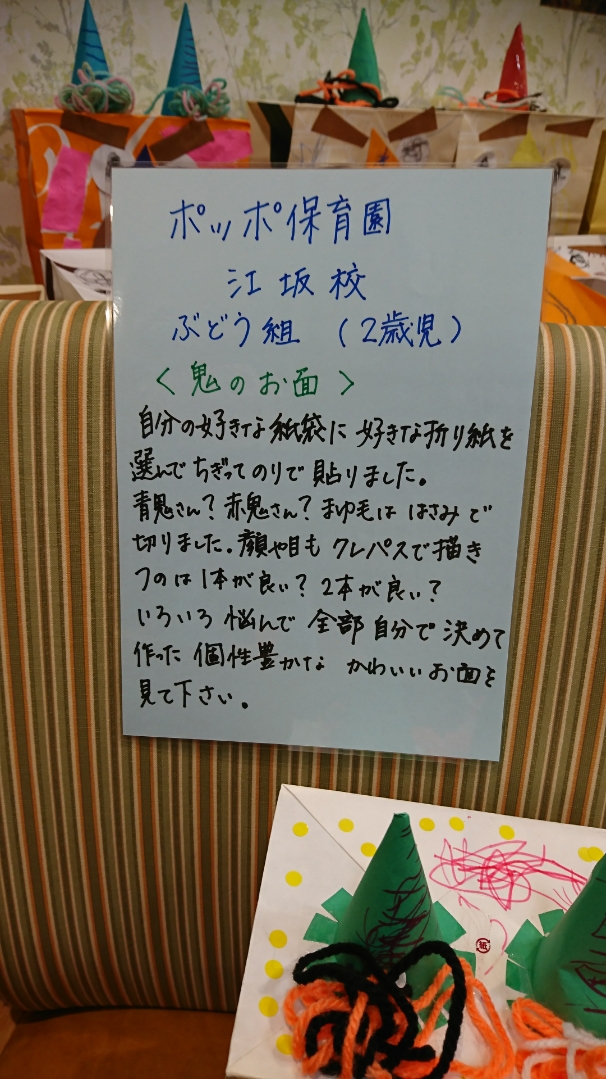 ポッポ保育園
江坂校
ぶどう組 (2歳児)
<鬼のお面>
自分の好きな紙袋に 好きな折り紙を
選んで ちぎって のりで 貼りました。
青鬼さん? 赤鬼さん? まゆ毛は はさみで
切りました。顔や目も クレパスで描き
つのは 1本が良い? 2本が良い?
いろいろ 悩んで 全部 自分で 決めて
作った 個性豊かな かわいいお面を
見て下さい。
紙